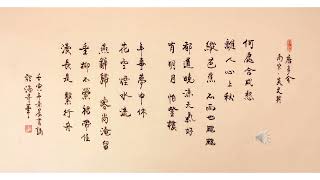 唐多令
南宋 吳文英
何處合成愁
離人心上秋
縱芭蕉不雨也颼颼
都道晚涼天氣好
有明月 怕登樓
年事夢中休
花空煙水流
燕辭歸 客尚淹留
垂柳不縈裙帶住
漫長是 繫行舟
壬寅年